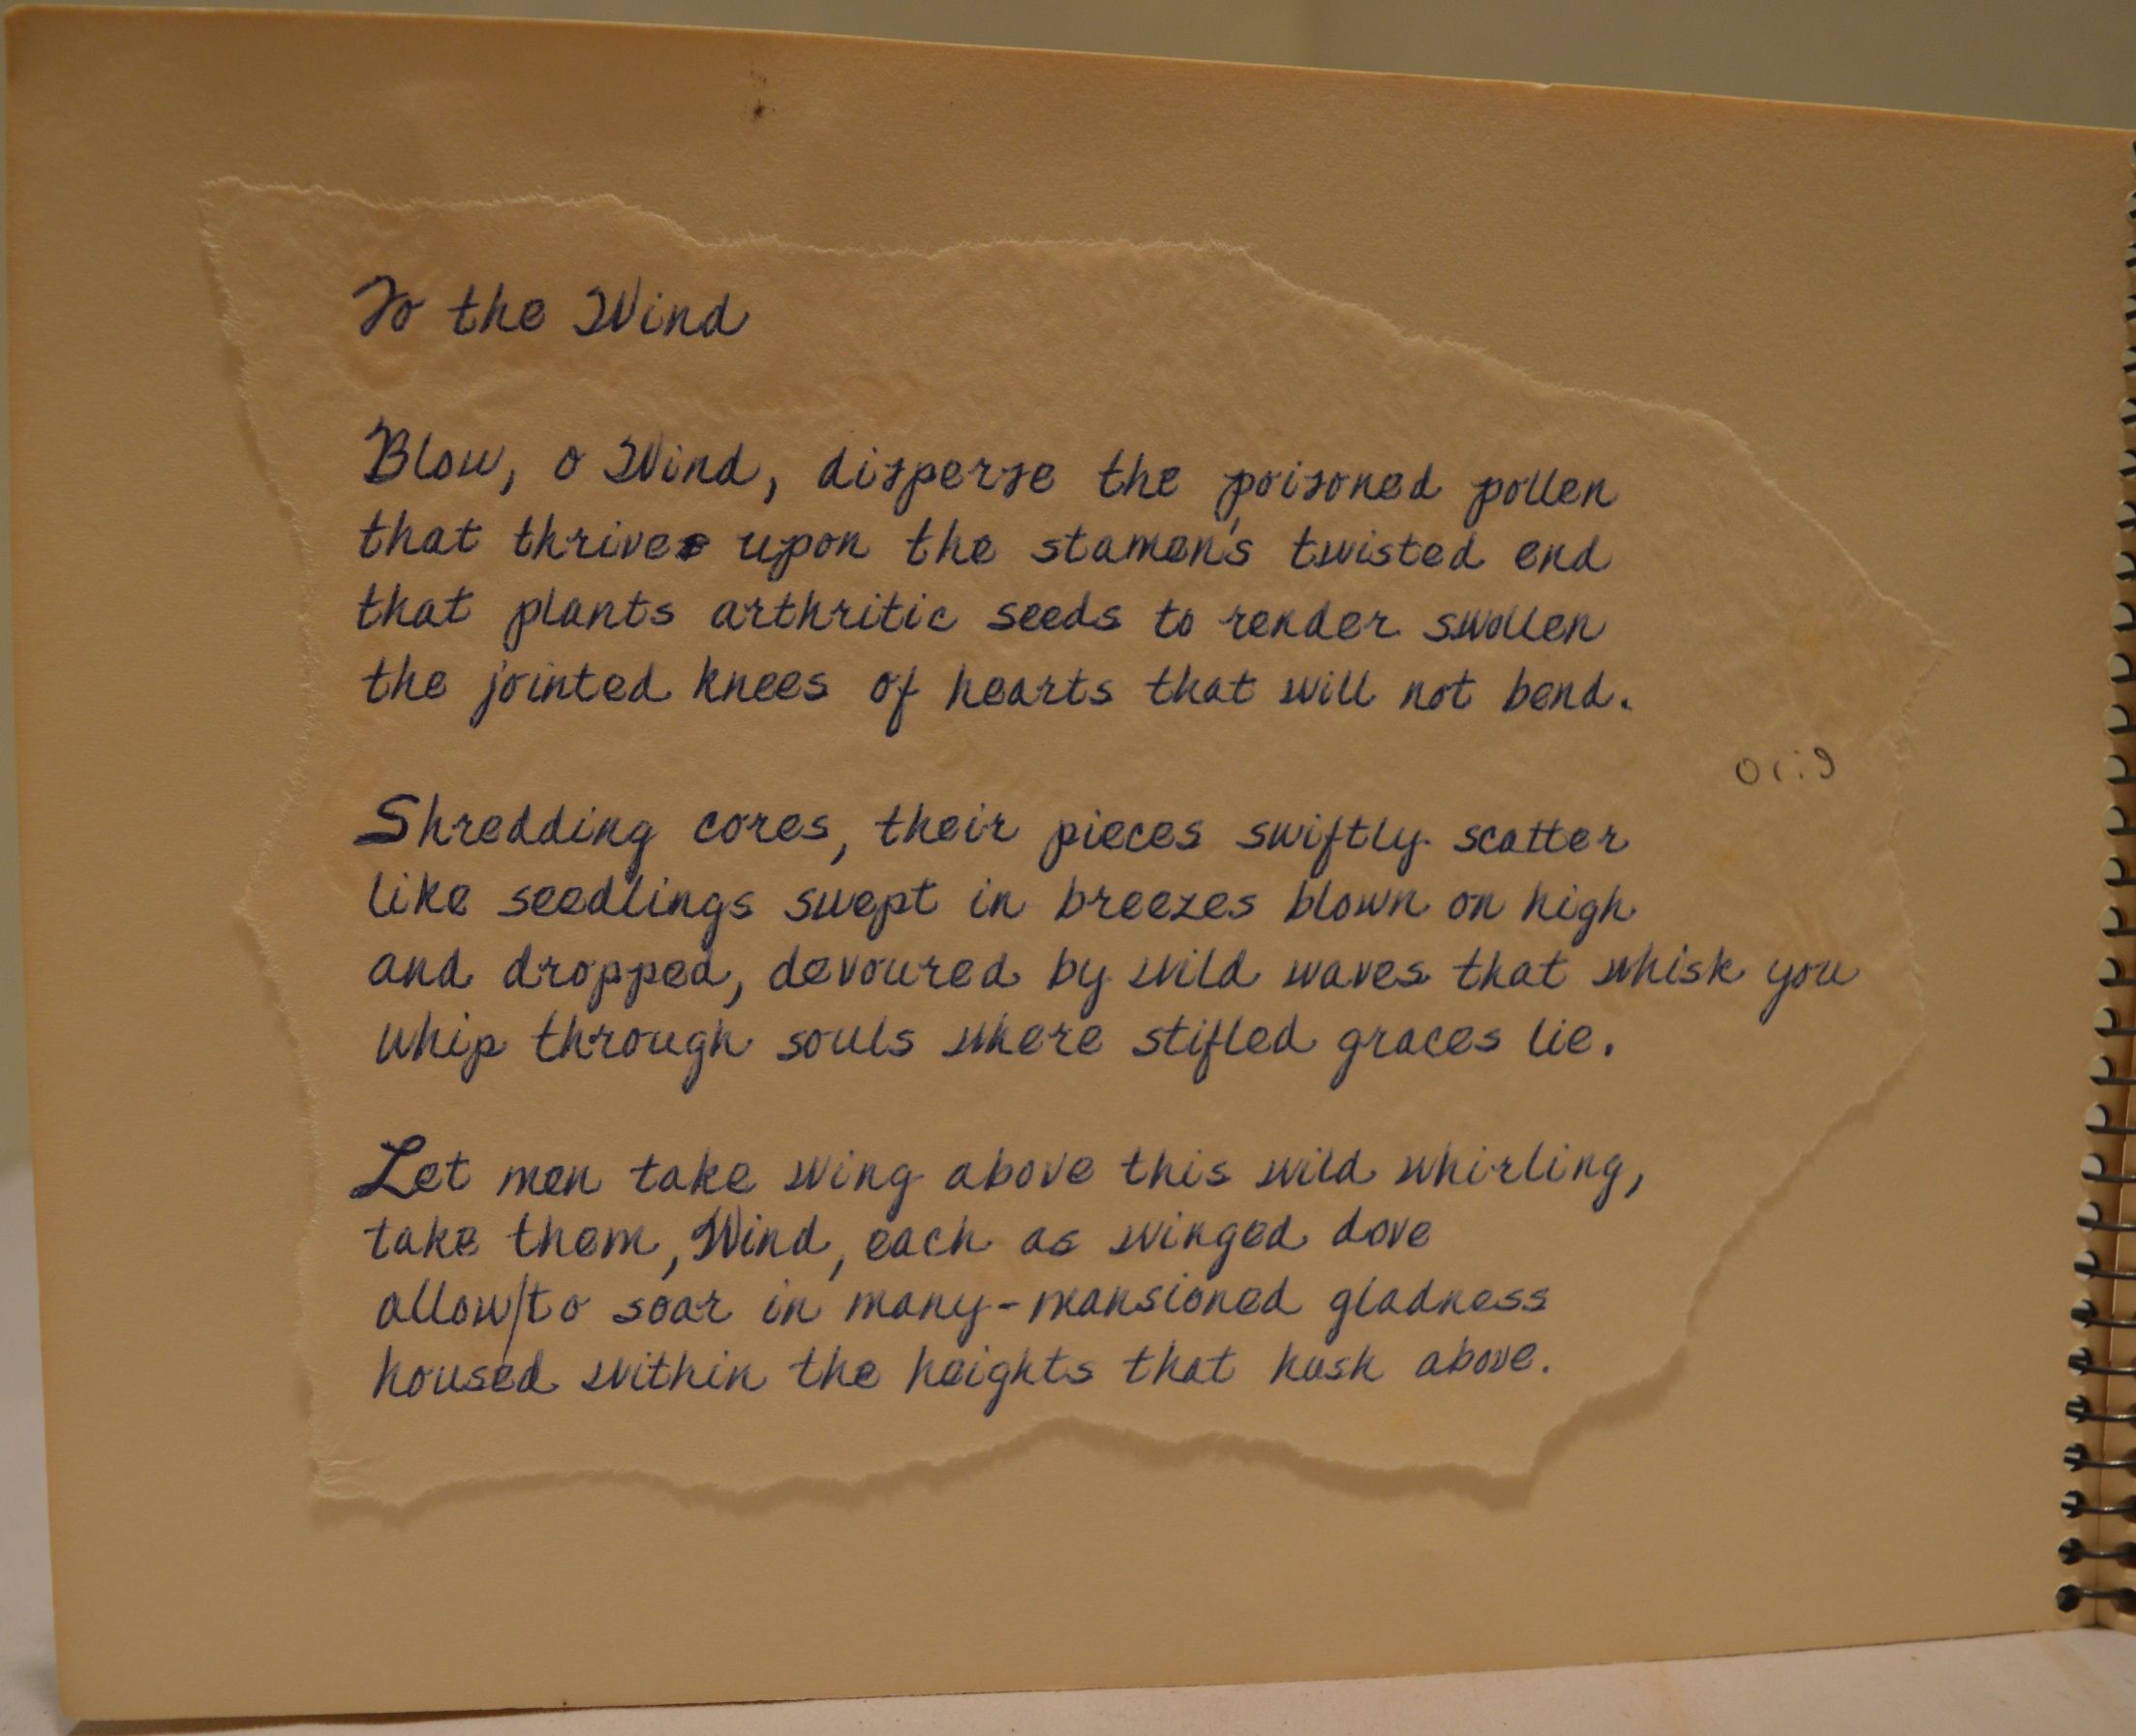 To the Wind
Blow, o Wind, disperse the poisoned pollen
that thrives upon the stamen's twisted end
that plants arthritic seeds to render swollen
the jointed knees of hearts that will not bend.
orig
Shredding cores, their pieces swiftly scatter
like seedlings swept in breezes blown on high
and dropped, devoured by wild waves that whisk you
whip through souls where stifled graces lie.
Let men take wing above this wild whirling,
take them, Wind, each as winged dove
allow/to soar in many-mansioned gladness
housed within the heights that hush above.